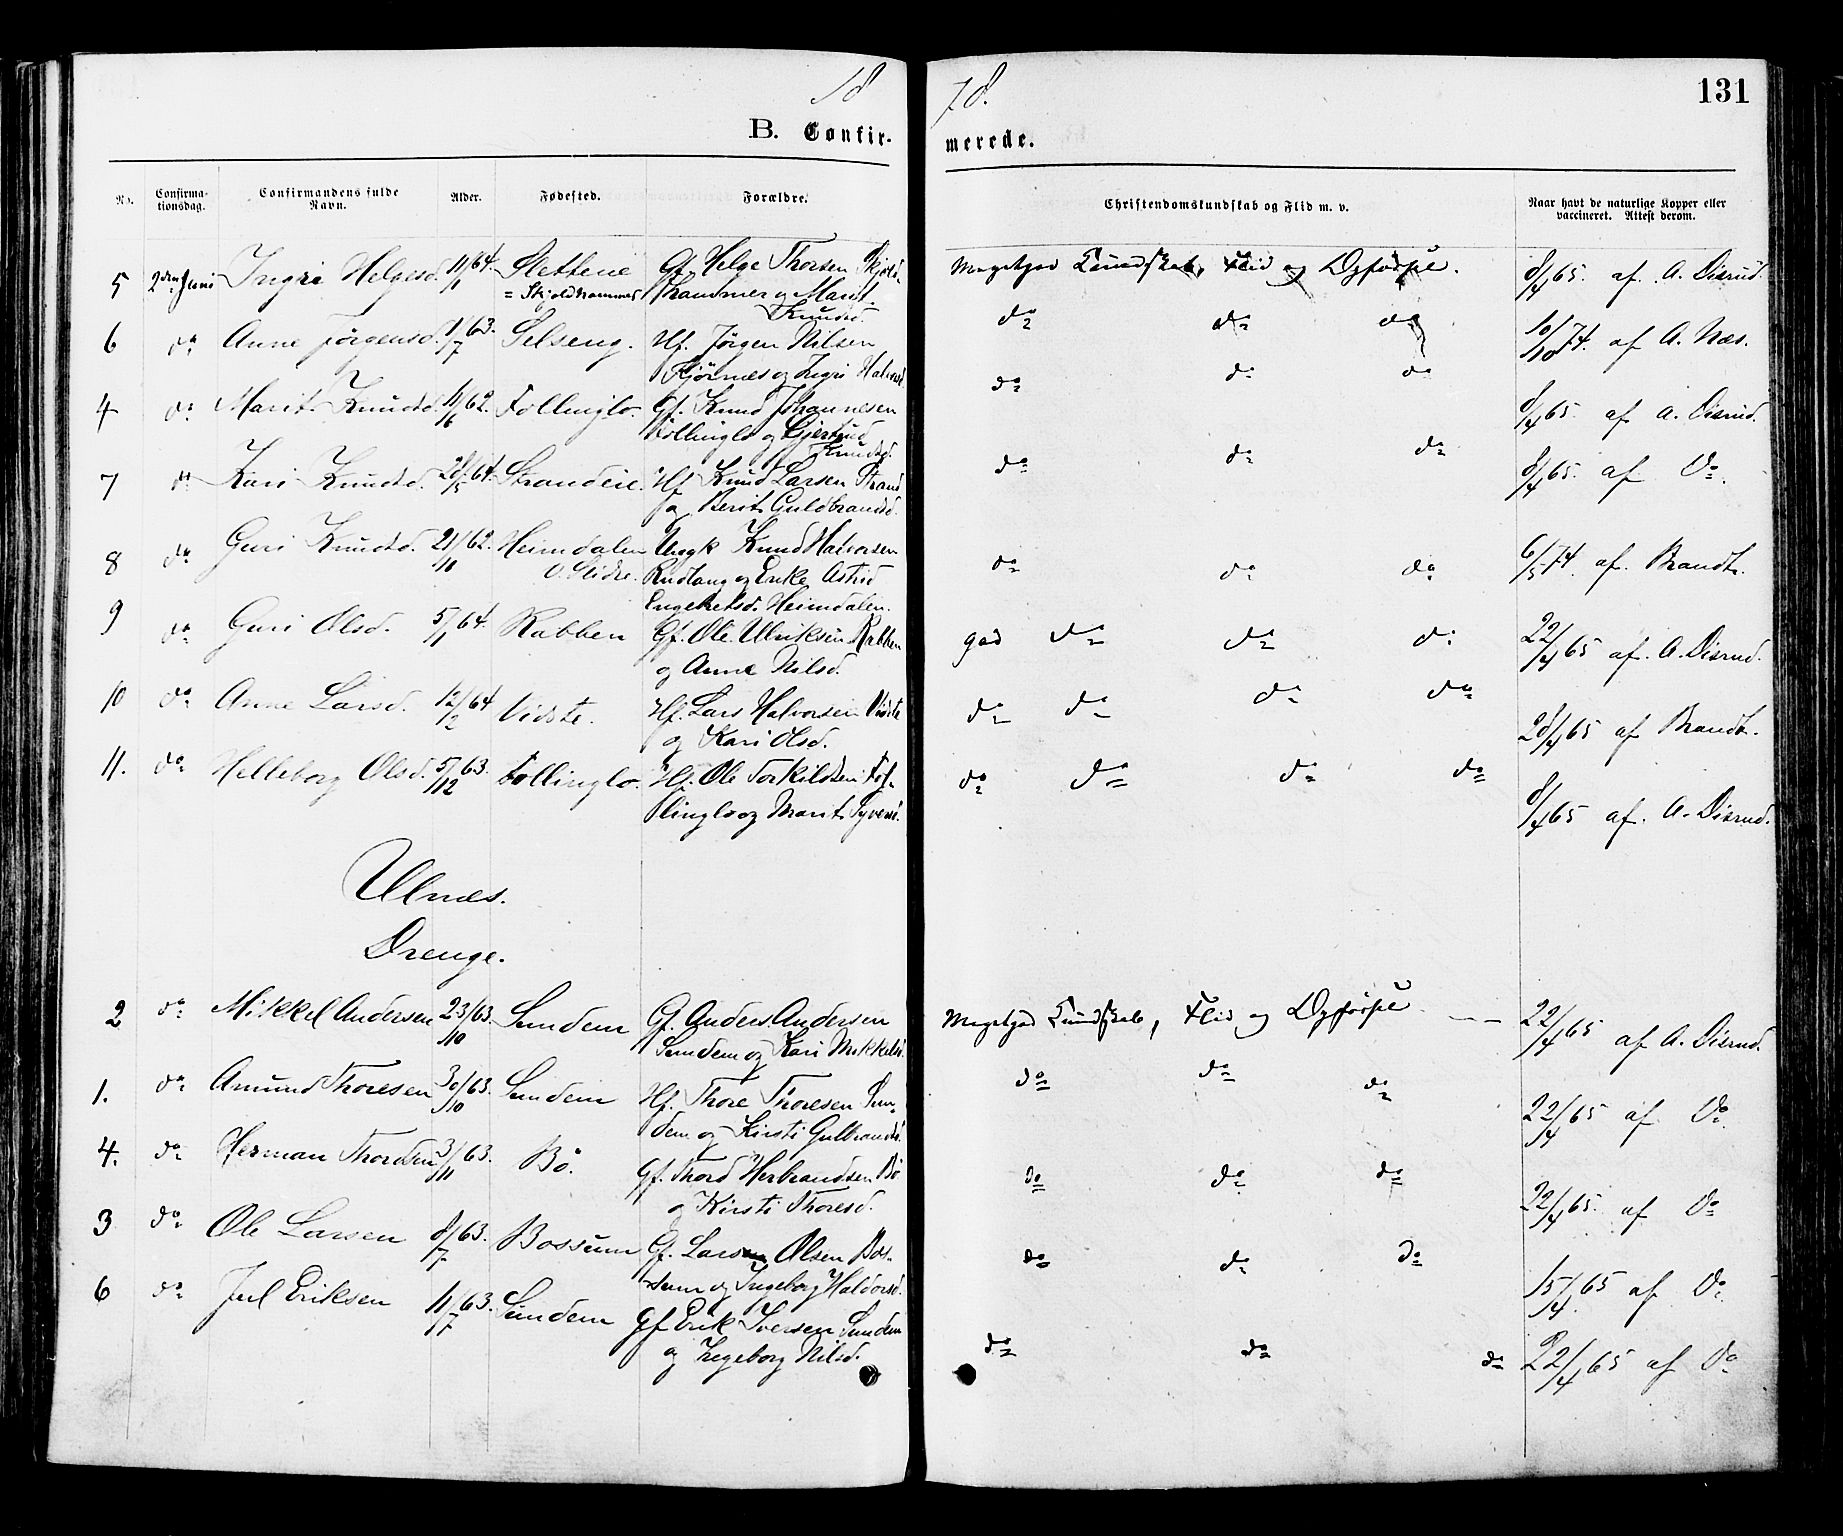 18
78.
131
B. Confir-
merede.
No.
Confirma-
tionsdag.
Confirmandens fulde
Navn.
Alder.
Fødested.
Forældre.
Christendomskundskab og Flid m. v.
Naar havt de naturlige Kopper eller
vaccineret. Attest derom.
5 2den Juni Ingri Helgesd. 11/1 64. Slettene Gf. Helge Thorsen Skjold-
= Skjoldhammer hammer og Marit
Knudsd.
Megetgod Kundskab, Flid og Opførsel. 8/4 65. af. A. Disrud.
6 do Anne Jørgensd. 1/7 63. Selseng. Hf. Jørgen Nilsen
og Ingri Halvorsd
do do do 10/10 74. af A. Næs.
4 do Marit Knudsd. 11/6 62. Follinglo. Gf. Knud Johannesen
Follinglo og Gjertrud
Knudsd.
do do do 8/4 65. af A. Disrud.
7 do Kari Knudsd. 28/5 64. Strandeie. Hf Knud Larsen Strand
og Berit Guldbrandsd.
do do do 8/4 65. af Do.
8 do Guri Knudsd. 21/10 62. Heimdalen Ungk Knud Halvorsen
Ø. Slidre. og Enke Astrid
Engebretsd. Heimdalen.
do do do 6/5 74. af. Brandt.
9 do Guri Olsd. 5/1 64. Rabben Gf. Ole Ulriksen Rabben
og Anne Nilsd.
god do do do 22/4 65 af. A. Disrud.
10 do Anne Larsd. 12/2 64 Vidste. Hf. Lars Halvorsen Vidste
og Kari Olsd.
do do do do 28/4 65 af Brandt.
11. do Helleborg Olsd. 5/12 63. Follinglo. Hf. Ole Torkildsen Fol-
linglo og Marit Syvers.
do do do do 8/4 65 af. A. Disrud.
Ulnes.
Drenge.
2 do Mikkel Andersen 23/10 63. Sundem Gf. Anders Andersen
Sundem og Kari Mikkelsd.
Megetgod Kundskab, Flid og Opførsel 22/4 65 af A. Disrud.
1. do Amund Thoresen 30/10 63. Sundem Hf. Thore Thoresen Sun-
dem og Kirsti Gulbrandsd.
do do do 22/4 65 af Do
4. do Herman Thordsen 3/11 63. Bö. Gf. Thord Herbrandsen Bö
og Kirsti Thoresd.
do do do 22/4 65. af Do
3 do Ole Larsen 8/7 63. Bossum Gf. Lars Olsen Bos-
sum og Ingeborg Haldorsd.
do do do 15/4 65 af Do
6 do Juel Eriksen 11/7 63. Sundem Gf Erik Iversen Sundem
og Ingeborg Nilsd.
do do do 22/4 65 af Do